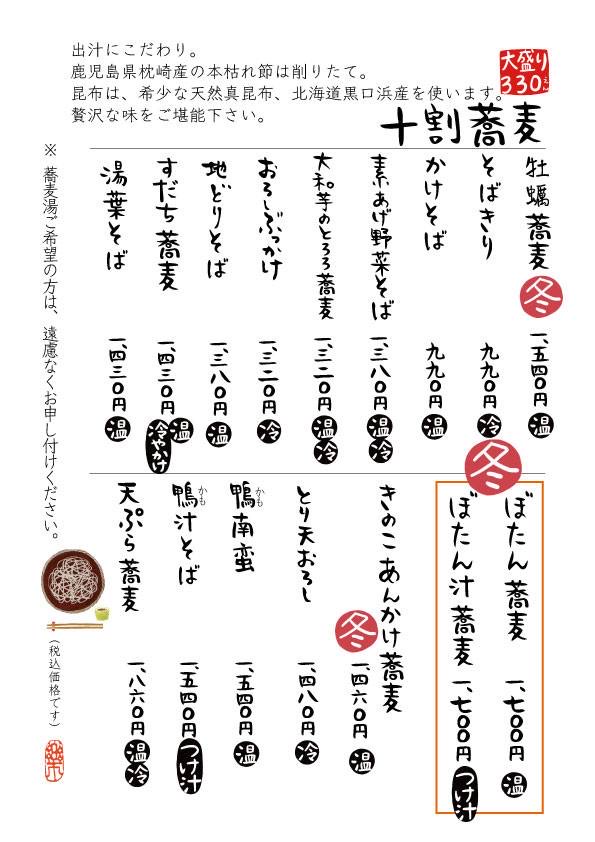 出汁にこだわり。
鹿児島県枕崎産の本枯れ節は削りたて。
昆布は、希少な天然真昆布、北海道黒口浜産を使います。
贅沢な味をご堪能下さい。
大盛り
330えん
十割蕎麦
牡蠣蕎麦 冬 一、五四〇円 温
そばきり 九九〇円 冷
かけそば 九九〇円 温
素あげ野菜そば 一、三八〇円 温 冷
大和芋のとろろ蕎麦 一、三二〇円 温 冷
おろしぶっかけ 一、三二〇円 冷
地どりそば 一、三八〇円 温
すだち蕎麦 一、四三〇円 温 冷やかけ
湯葉そば 一、四三〇円 温
冬
ぼたん蕎麦 一、七〇〇円 温
ぼたん汁蕎麦 一、七〇〇円 つけ汁
きのこあんかけ蕎麦 冬 一、四六〇円 温
とり天おろし 一、四八〇円 冷
鴨南蛮 かも 一、五四〇円 温
鴨汁そば かも 一、五四〇円 つけ汁
天ぷら蕎麦 一、八六〇円 温 冷
※ 蕎麦湯ご希望の方は、遠慮なくお申し付けください。
(税込価格です)